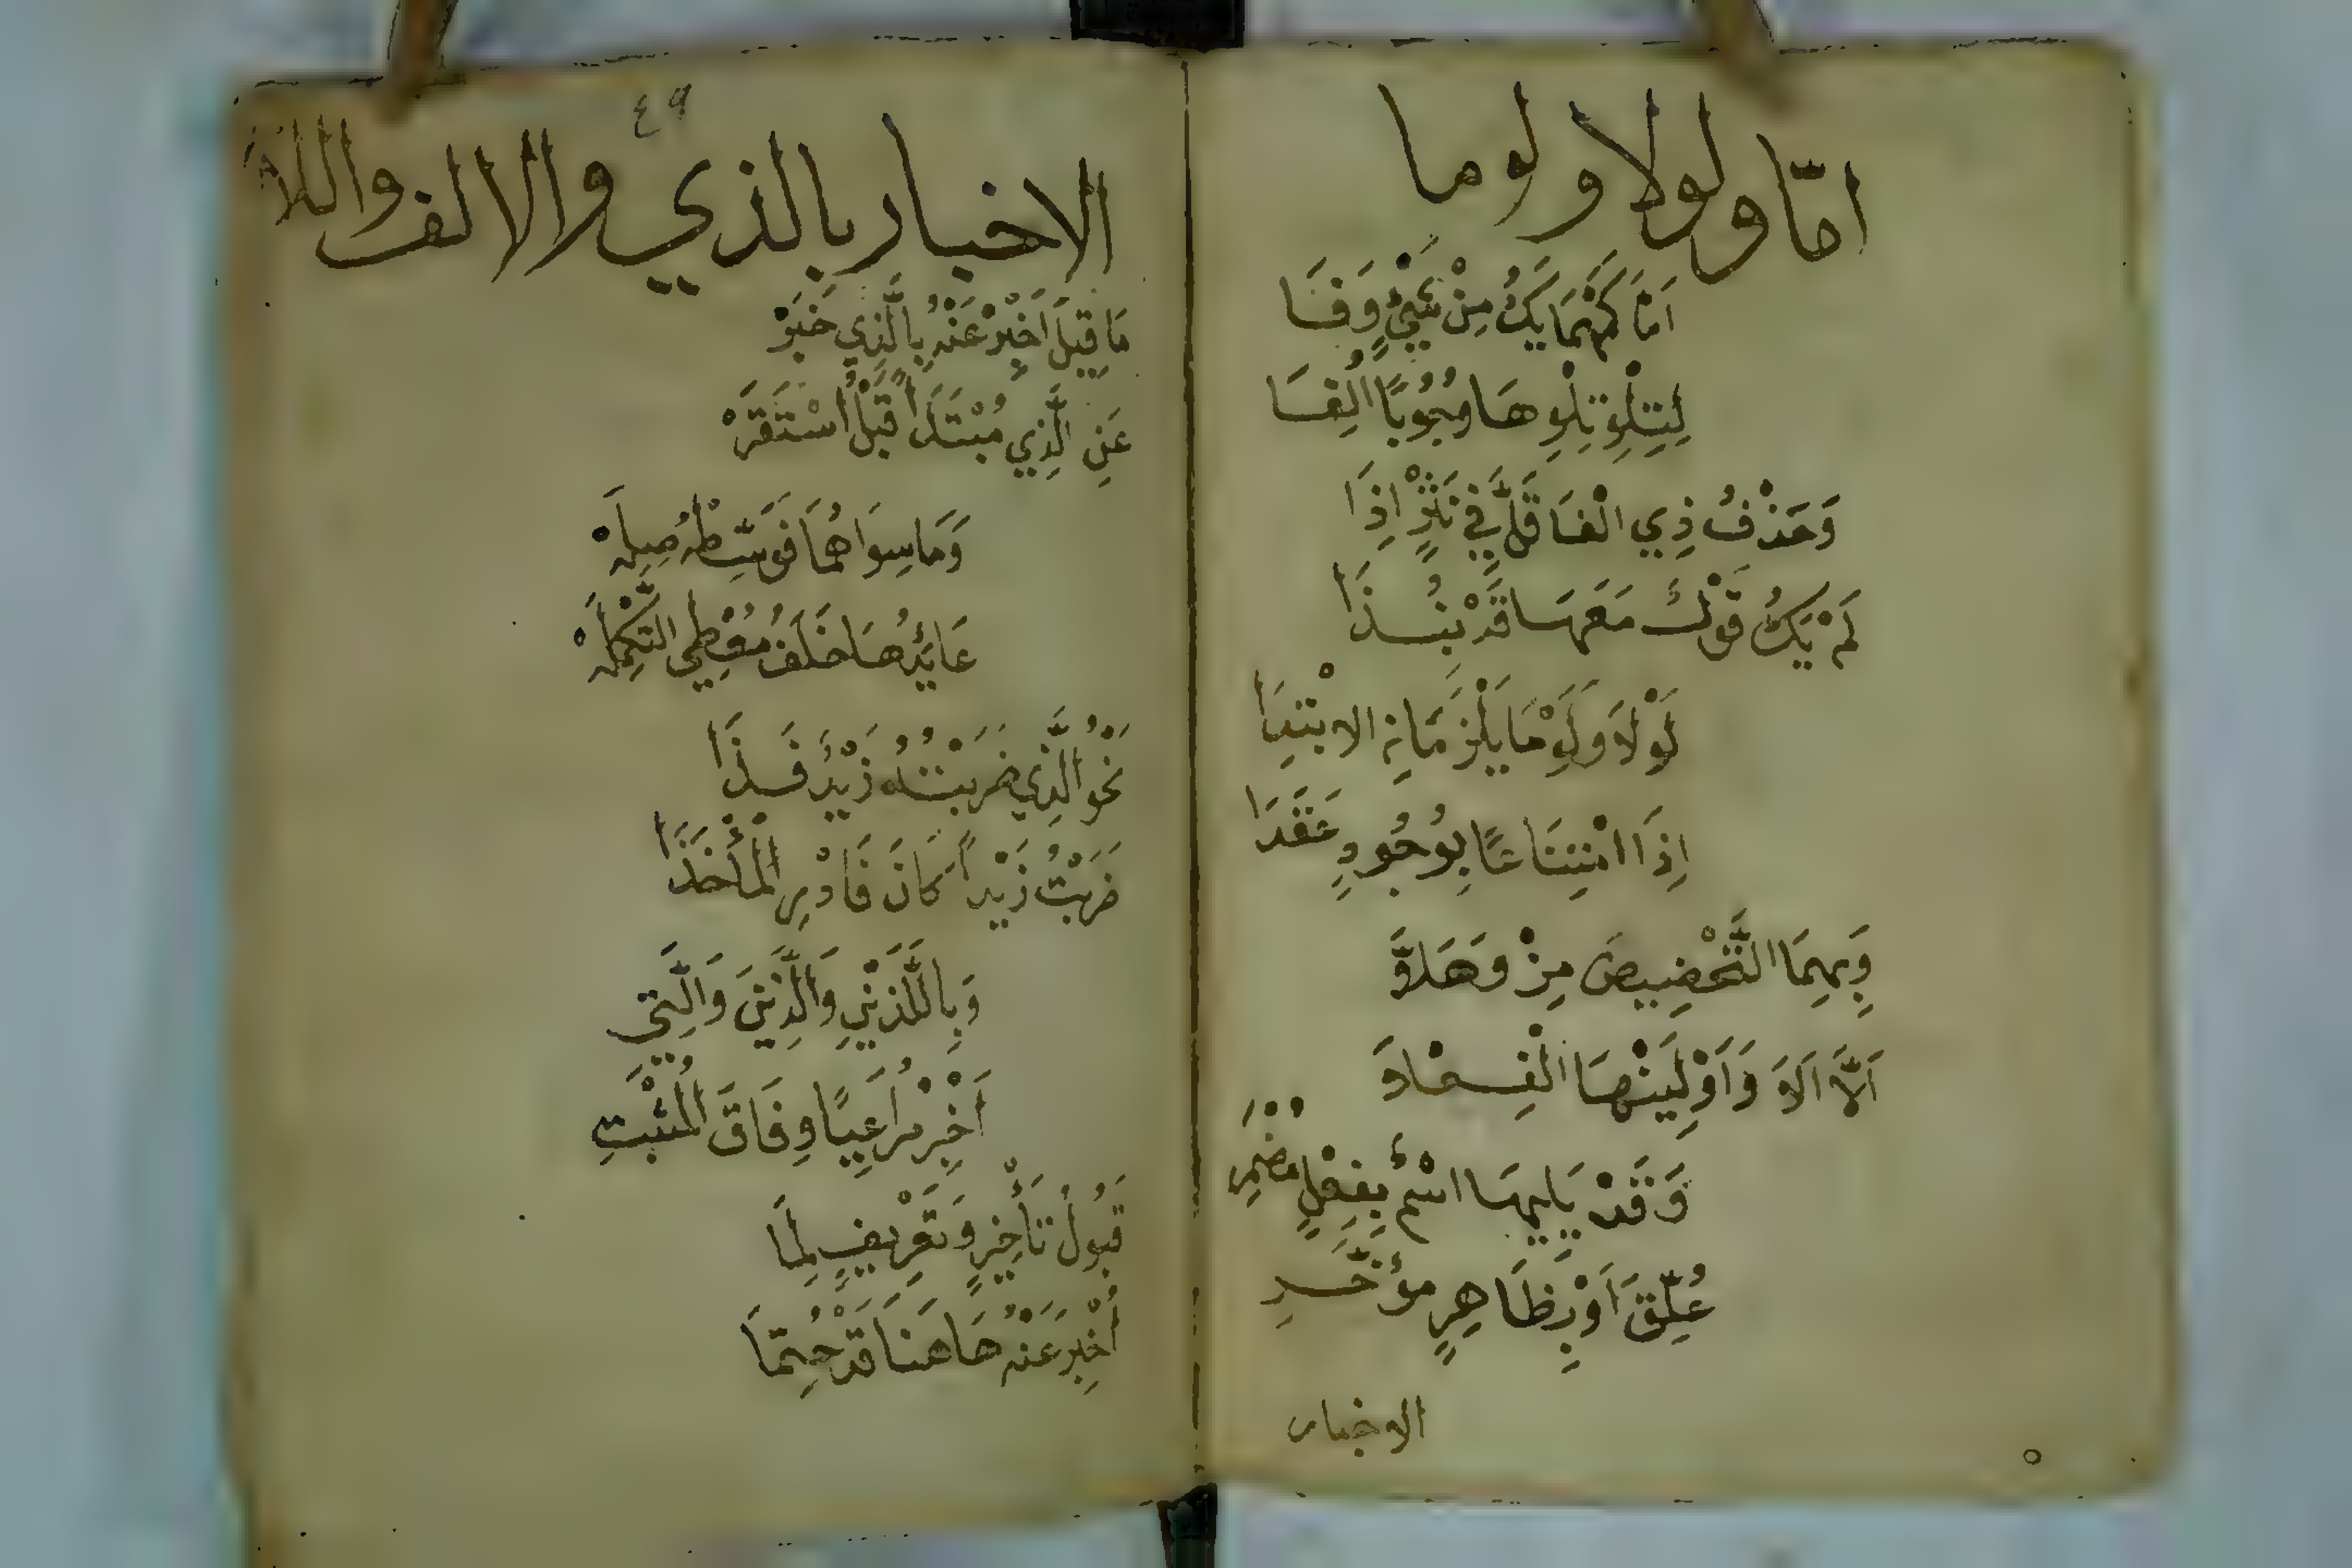 امّا ولولا ولوما
اَمَّا كَمَهْمَا يَكُ مِنْ شَيْءٍ وَفَا
لِتِلْوِ تِلْوِهَا وُجُوبًا اُلِفَا
وَحَذْفُ ذِي الْفَا قَلَّ فِي نَثْرٍ اِذَا
لَمْ يَكُ قَوْلٌ مَعَهَا قَدْ نُبِذَا
لَوْلَا وَلَوْمَا يَلْزَمَانِ الابْتِدَا
اِذَا امْتِنَاعًا بِوُجُودٍ عَقَدَا
وَبِهِمَا التَّحْضِيضَ مِزْ وَهَلَّا
اَلَّا اَلَا وَاَوْلِيَنْهَا الْفِعْلَا
وَقَدْ يَلِيهَا اسْمٌ بِفِعْلٍ مُضْمَرِ
عُلِّقَ اَوْ بِظَاهِرٍ مُؤَخَّرِ
الاخبار
٤٩
الاخبار بالذي والالف واللام
مَا قِيلَ اَخْبِرْ عَنْهُ بِالَّذِي خَبَرْ
عَنِ الَّذِي مُبْتَدَاً قَبْلُ اسْتَقَرْ
وَمَا سِوَاهُمَا فَوَسِّطْهُ صِلَهْ
عَائِدُهَا خَلَفُ مُعْطِي التَّكْمِلَهْ
نَحْوُ الَّذِي ضَرَبْتُهُ زَيْدٌ فَذَا
ضَرَبْتُ زَيْداً كَانَ فَادْرِ الْمَأْخَذَا
وَبِاللَّذَيْنِ وَالَّذِينَ وَالَّتِي
اَخْبِرْ مُرَاعِيًا وِفَاقَ الْمُثْبَتِ
قَبُولُ تَأْخِيرٍ وَتَعْرِيفٍ لِمَا
اُخْبِرَ عَنْهُ هَاهُنَا قَدْ حُتِمَا